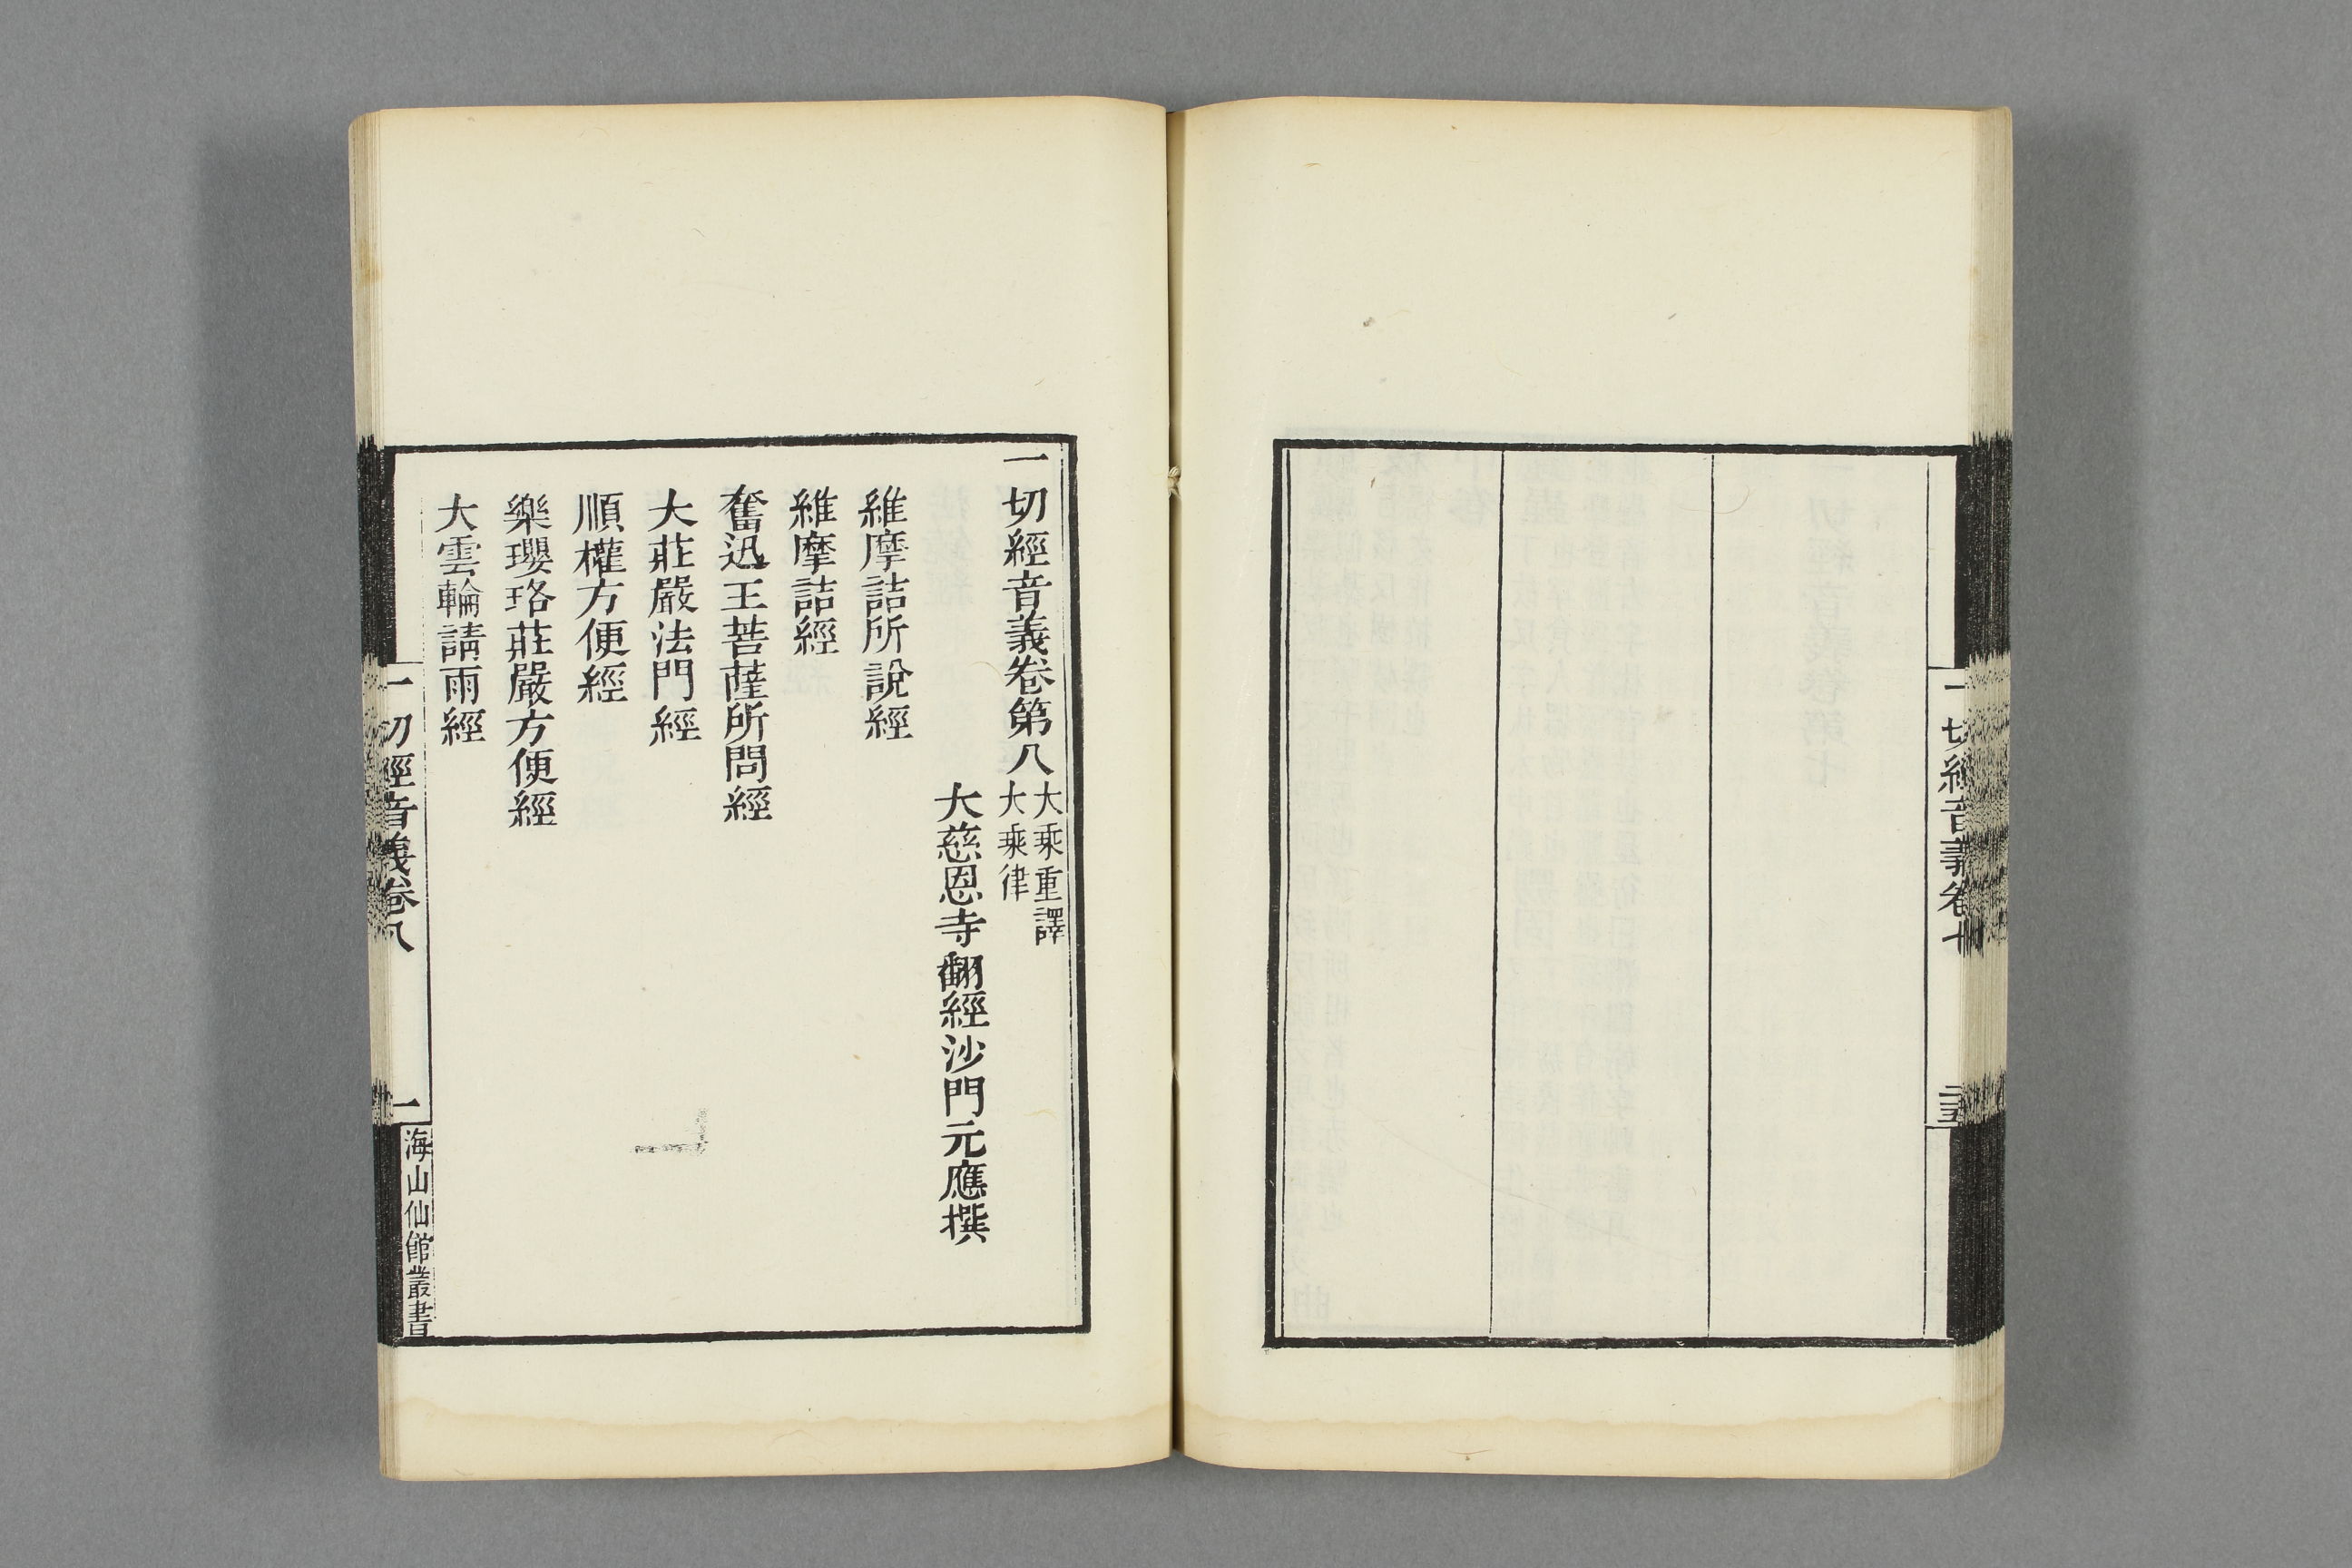 一切經音義卷七
一切經音義卷第八
大乘重譯
大乘律
大慈恩寺翻經沙門元應撰
維摩詰所說經
維摩詰經
奮迅王菩薩所問經
大莊嚴法門經
順權方便經
樂瓔珞莊嚴方便經
大雲輪請雨經
一切經音義卷八
一
海山仙館叢書